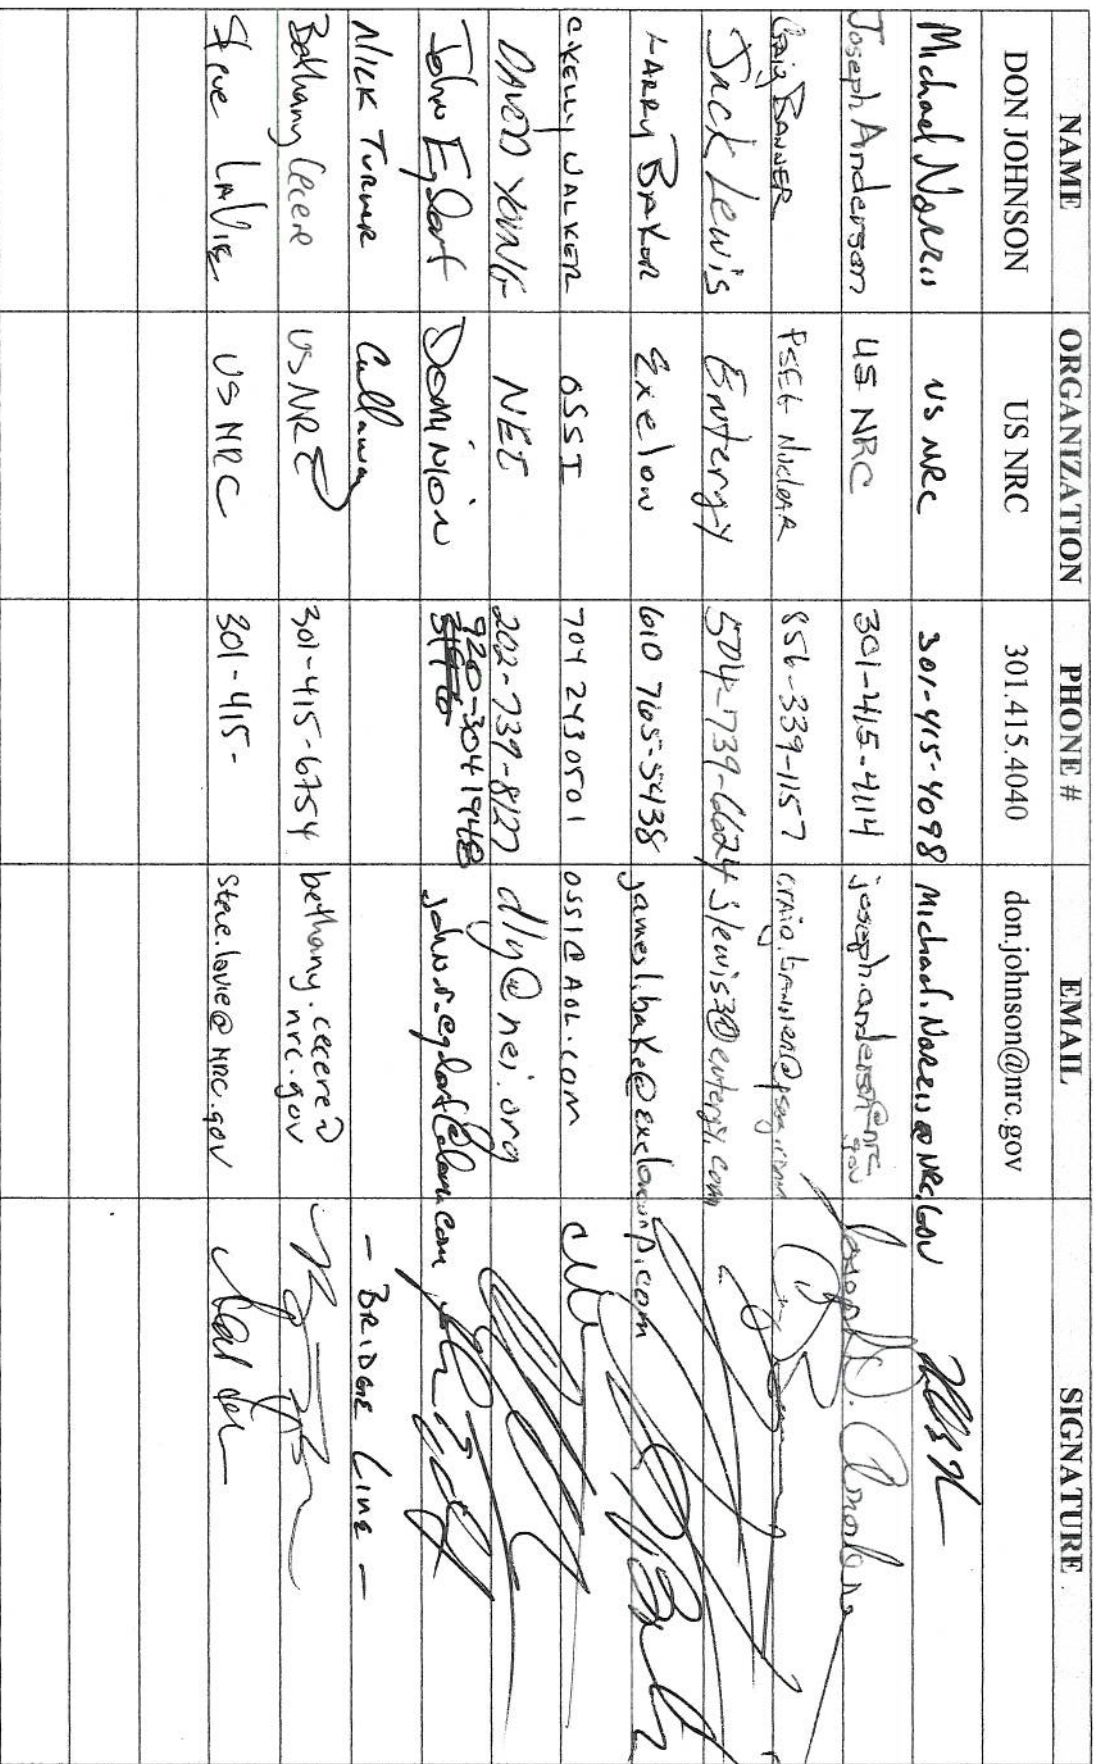 NAME ORGANIZATION PHONE # EMAIL SIGNATURE
DON JOHNSON US NRC 301.415.4040 don.johnson@nrc.gov
Michael Norris US NRC 301-415-4098 Michael.Norris@NRC.GOV
Joseph Anderson US NRC 301-415-4114 joseph.anderson@nrc.gov
Craig BANNER PSEG Nuclear 856-339-1157 craig.banner@pseg.com
Jack Lewis Entergy 504-739-6624 slewis3@entergy.com
LARRY BAKER Exelon 610 765-5438 jamesl.bake@exeloncorp.com
C. KELLY WALKER OSSI 704 243 0501 OSSI@AOL.COM
DAVID YOUNG NEI 202-739-8127 dly@nei.org
John Egdorf DOMINION 920-304 1948 john.f.egdorf@dom.com
NICK TURNER Callaway - BRIDGE LINE -
Bethany Cecere US NRC 301-415-6754 bethany.cecere@
nrc.gov
Steve LaVie US NRC 301-415- Steve.lavie@NRC.gov